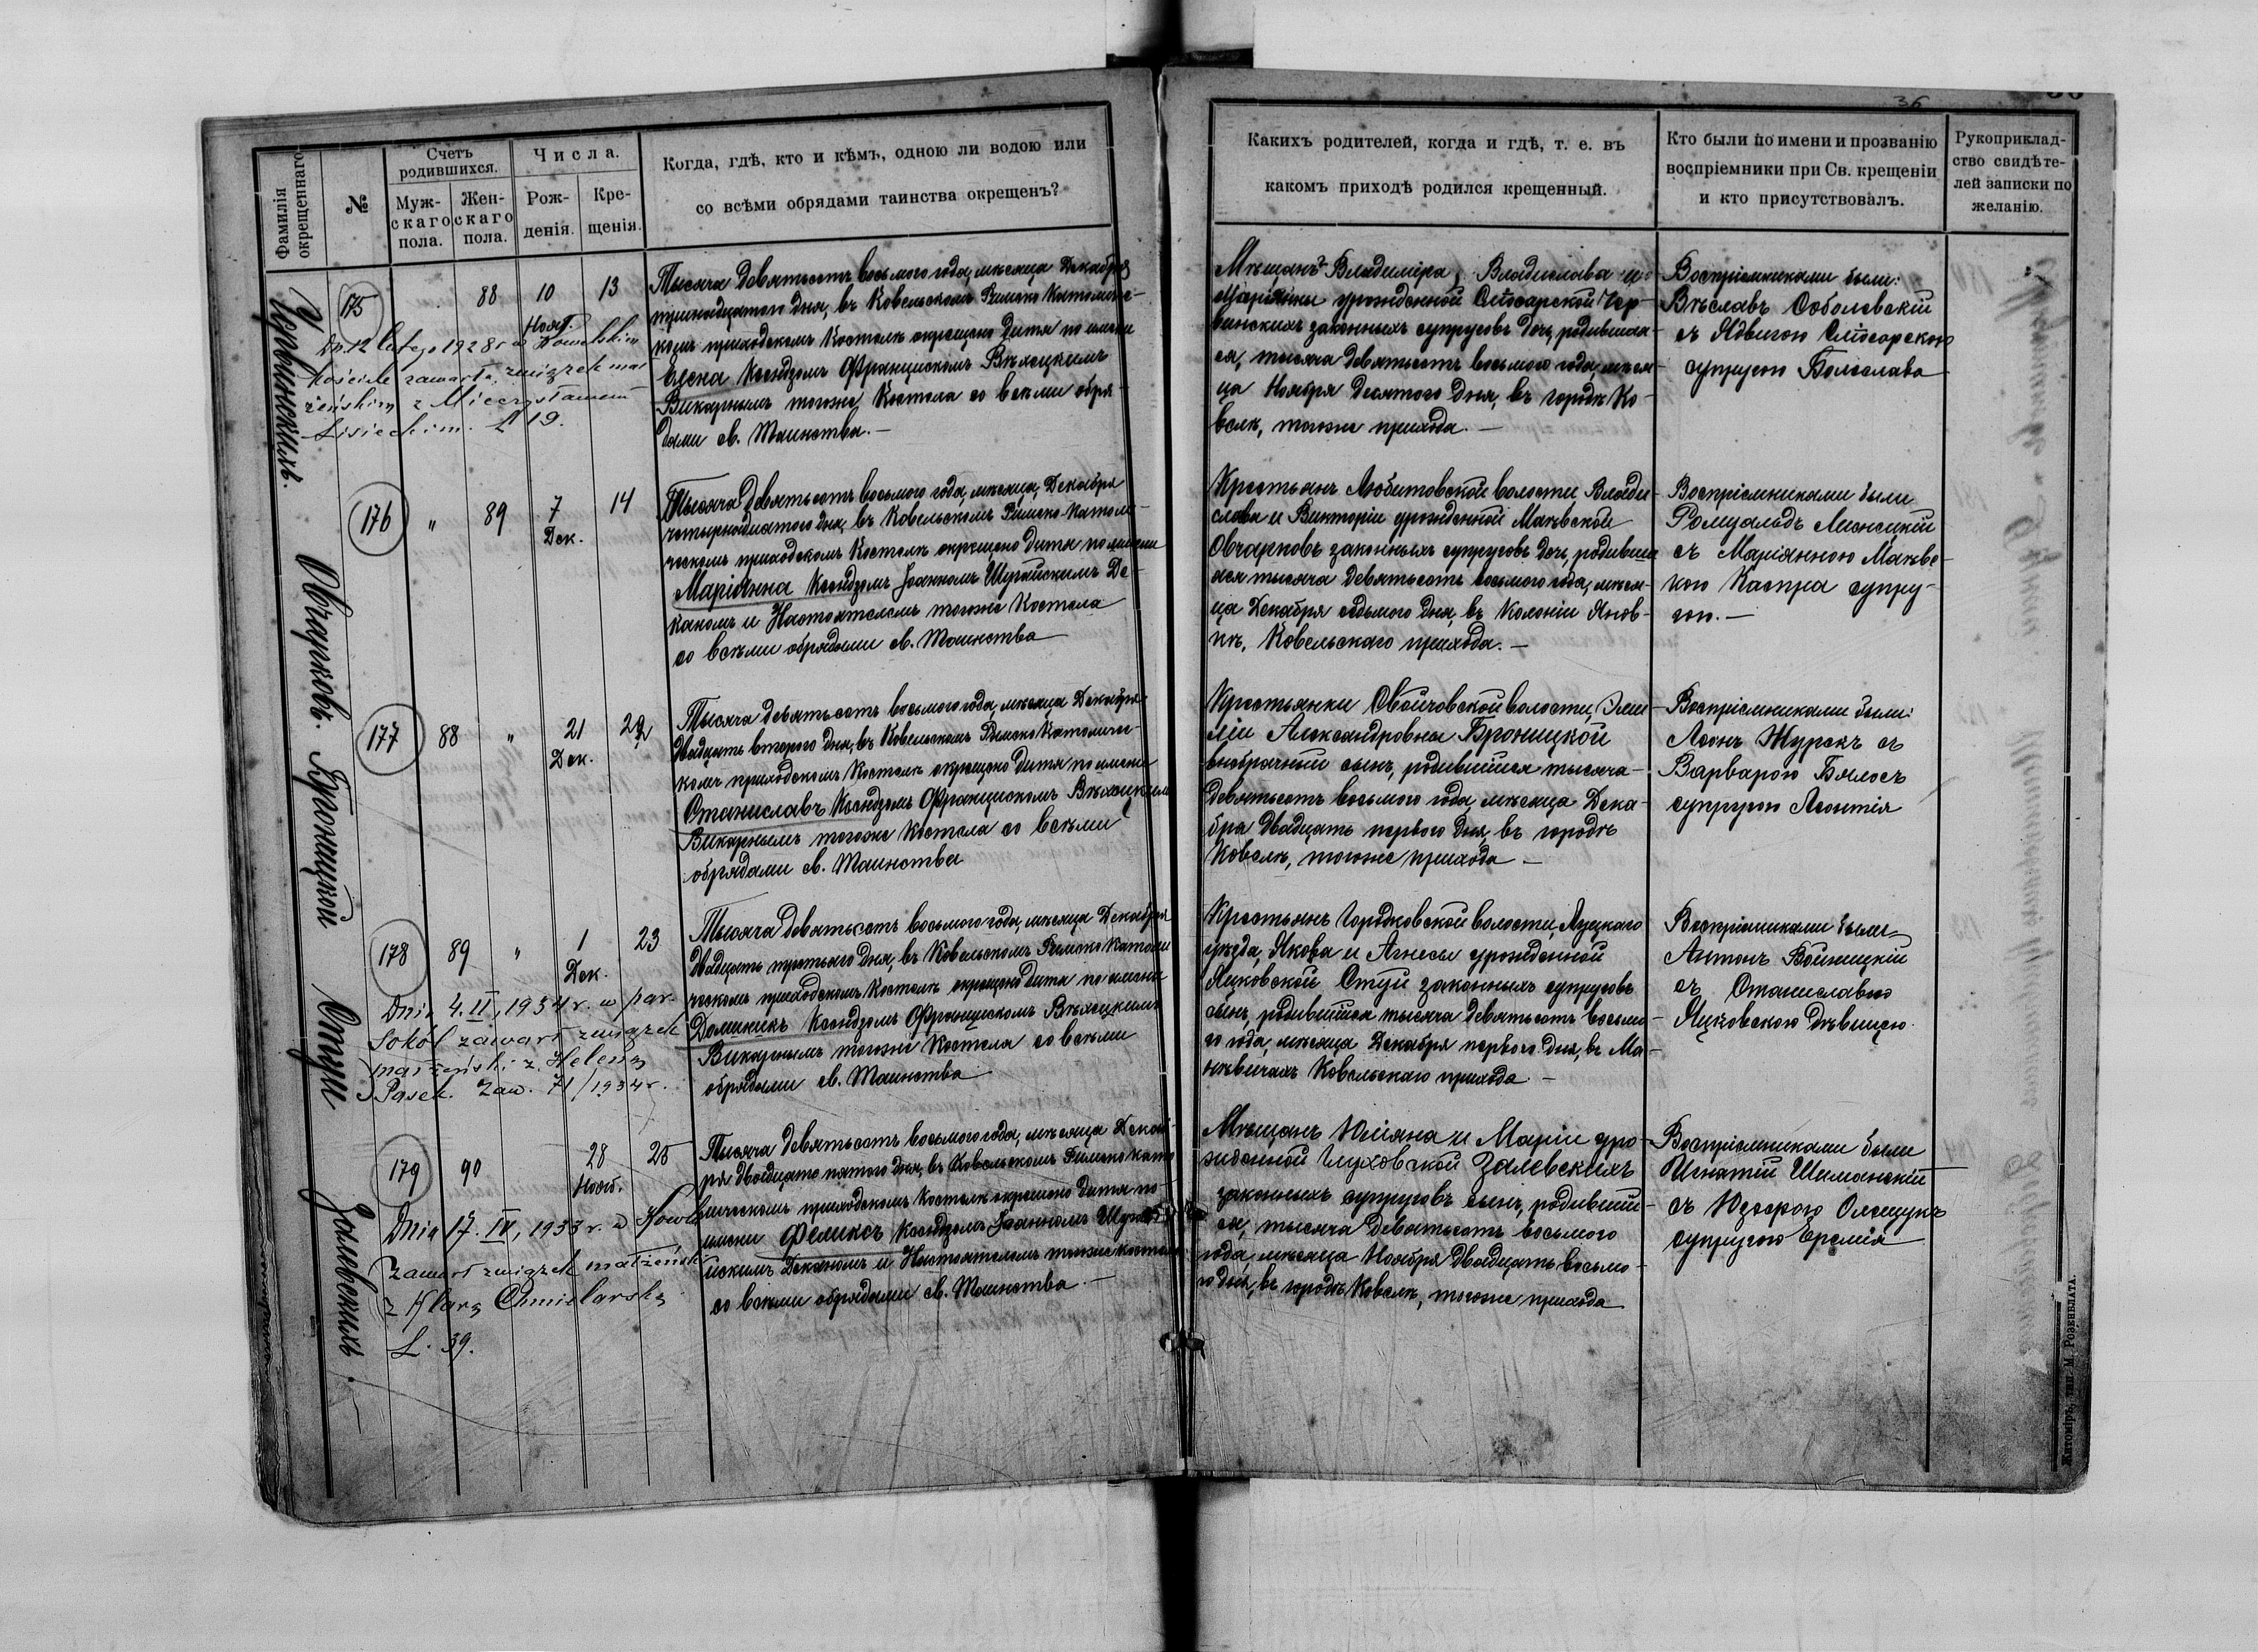 36
Фамилія окрещеннаго
№
Счетъ родившихся.
Муж-скаго пола.
Жен-скаго пола.
Числа.
Рож-денія.
Кре-щенія.
Когда, гдѣ, кто и кѣмъ, одною ли водою или
со всѣми обрядами таинства окрещенъ?
Какихъ родителей, когда и гдѣ, т. е. въ
какомъ приходѣ родился крещенный.
Кто были по имени и прозванію
воспріемники при Св. крещеніи
и кто присутствовалъ.
Рукоприклад-
ство свидѣте-
лей записки по
желанію.
175
88
10
Нояб.
13
12 lutego 1928 r. w Kowelskim
kościele zawarła związek mał
żeński z Mieczysławem
Lisieckim. L 19.
Тысяча девятьсотъ восьмого года, мѣсяца Декабря
тринадцатого дня, въ Ковельскомъ Римско Католичес-
комъ приходскомъ Костелѣ окрещено дитя по имени
Ксендзомъ Францискомъ
Викарнымъ тогоже Костела со всѣми обря-
дами св. Таинства.—
Мѣщанъ Владиміра, Владислава и
Маріанны урожденной Слюсарской Чер-
винскихъ законныхъ супруговъ дочь, родившая-
ся, тысяча девятьсотъ восьмого года, мѣся-
ца Ноября Десятого дня, въ городѣ Ко-
велѣ, тогоже прихода.—
Воспріемниками были:
Соболевскій
съ Ядвигою Слюсарскою
супругою Болеслава
176
"
89
7
Дек.
14
Овчарковъ.
Тысяча девятьсотъ восьмого года, мѣсяца Декабря
четырнадцатого дня, въ Ковельскомъ Римско-Католи-
ческомъ приходскомъ Костелѣ окрещено дитя по имени
Маріанна Ксендзомъ Іоанномъ Шурминскимъ Де-
каномъ и Настоятелемъ тогоже Костела
со всѣми обрядами св. Таинства
Крестьянъ Любитовской волости, Влади-
слава и Викторіи урожденной Маевской
Овчарковъ законныхъ супруговъ дочь, родивша-
аяся тысяча девятьсотъ восьмого года, мѣся-
ца Декабря седьмого дня, въ Колоніи Янов-
кѣ, Ковельскаго прихода.—
Воспріемниками были
Ромуальдъ
съ Маріанною Маевс-
кою Каспра супру-
гою.—
177
88
"
21
Дек.
22
Броницкой
Тысяча девятьсотъ восьмого года, мѣсяца Декабря
двадцать второго дня, въ Ковельскомъ Римско Католичес-
комъ приходскомъ Костелѣ окрещено дитя по имени
Станиславъ Ксендзомъ Францискомъ
Викарнымъ тогоже Костела со всѣми
обрядами св. Таинства
Крестьянки Свойчовской волости, Эми-
ліи Александровны Броницкой
внѣбрачный сынъ, родившійся тысяча
девятьсотъ восьмого года, мѣсяца Дека-
бря двадцать перваго дня, въ городѣ
Ковелѣ, тогоже прихода —
Воспріемниками были:
Леонъ Журекъ съ
Варварою Бялосъ
супругою Леонтія
178
89
"
1
Дек.
23
Стуи
Dnia 4.II.1934 r. w par.
Sokół zawarł związek
małżeński z Heleną
Pasek. Zaw. 71/1934 r.
Тысяча девятьсотъ восьмого года, мѣсяца Декабря
двадцать третьяго дня, въ Ковельскомъ Римско Католи-
ческомъ приходскомъ Костелѣ окрещено дитя по имени
Доминикъ Ксендзомъ Францискомъ
Викарнымъ тогоже Костела со всѣми
обрядами св. Таинства
Крестьянъ Городковской волости, Луцкаго
уѣзда, Якова и Агнесы урожденной
Яцковской Стуй законныхъ супруговъ
сынъ, родившійся тысяча девятьсотъ восьмо-
го года, мѣсяца Декабря перваго дня, въ Ма-
невичахъ Ковельскаго прихода —
Воспріемниками были
Антонъ Войницкій
съ Станиславою
Яцковскою дѣвицею.
179
90
28
Нояб.
25
Залевскихъ.—
Dnia 17.IV.1933 r. w Kowlu
zawarł związek małżeński
z Klarą Chmielarską
L. 39.
Тысяча девятьсотъ восьмого года, мѣсяца Декаб-
ря двадцать пятого дня, въ Ковельскомъ Римско като-
лическомъ приходскомъ Костелѣ окрещено дитя по
имени Феликсъ Ксендзомъ Іоанномъ Шурм-
инскимъ Деканомъ и Настоятелемъ тогоже костела
со всѣми обрядами св. Таинства.—
Мѣщанъ Юліяна и Маріи уро-
жденной Глуховской Залевскихъ
законныхъ супруговъ сынъ, родивші-
ся, тысяча девятьсотъ восьмого
года, мѣсяца Ноября двадцать восьмо-
го дня, въ городѣ Ковелѣ, тогоже прихода
Воспріемниками были
Игнатій Шиманскій
съ Юзефою Олещукъ
супругою Еремія
Житоміръ, тип. М. Розенблата.